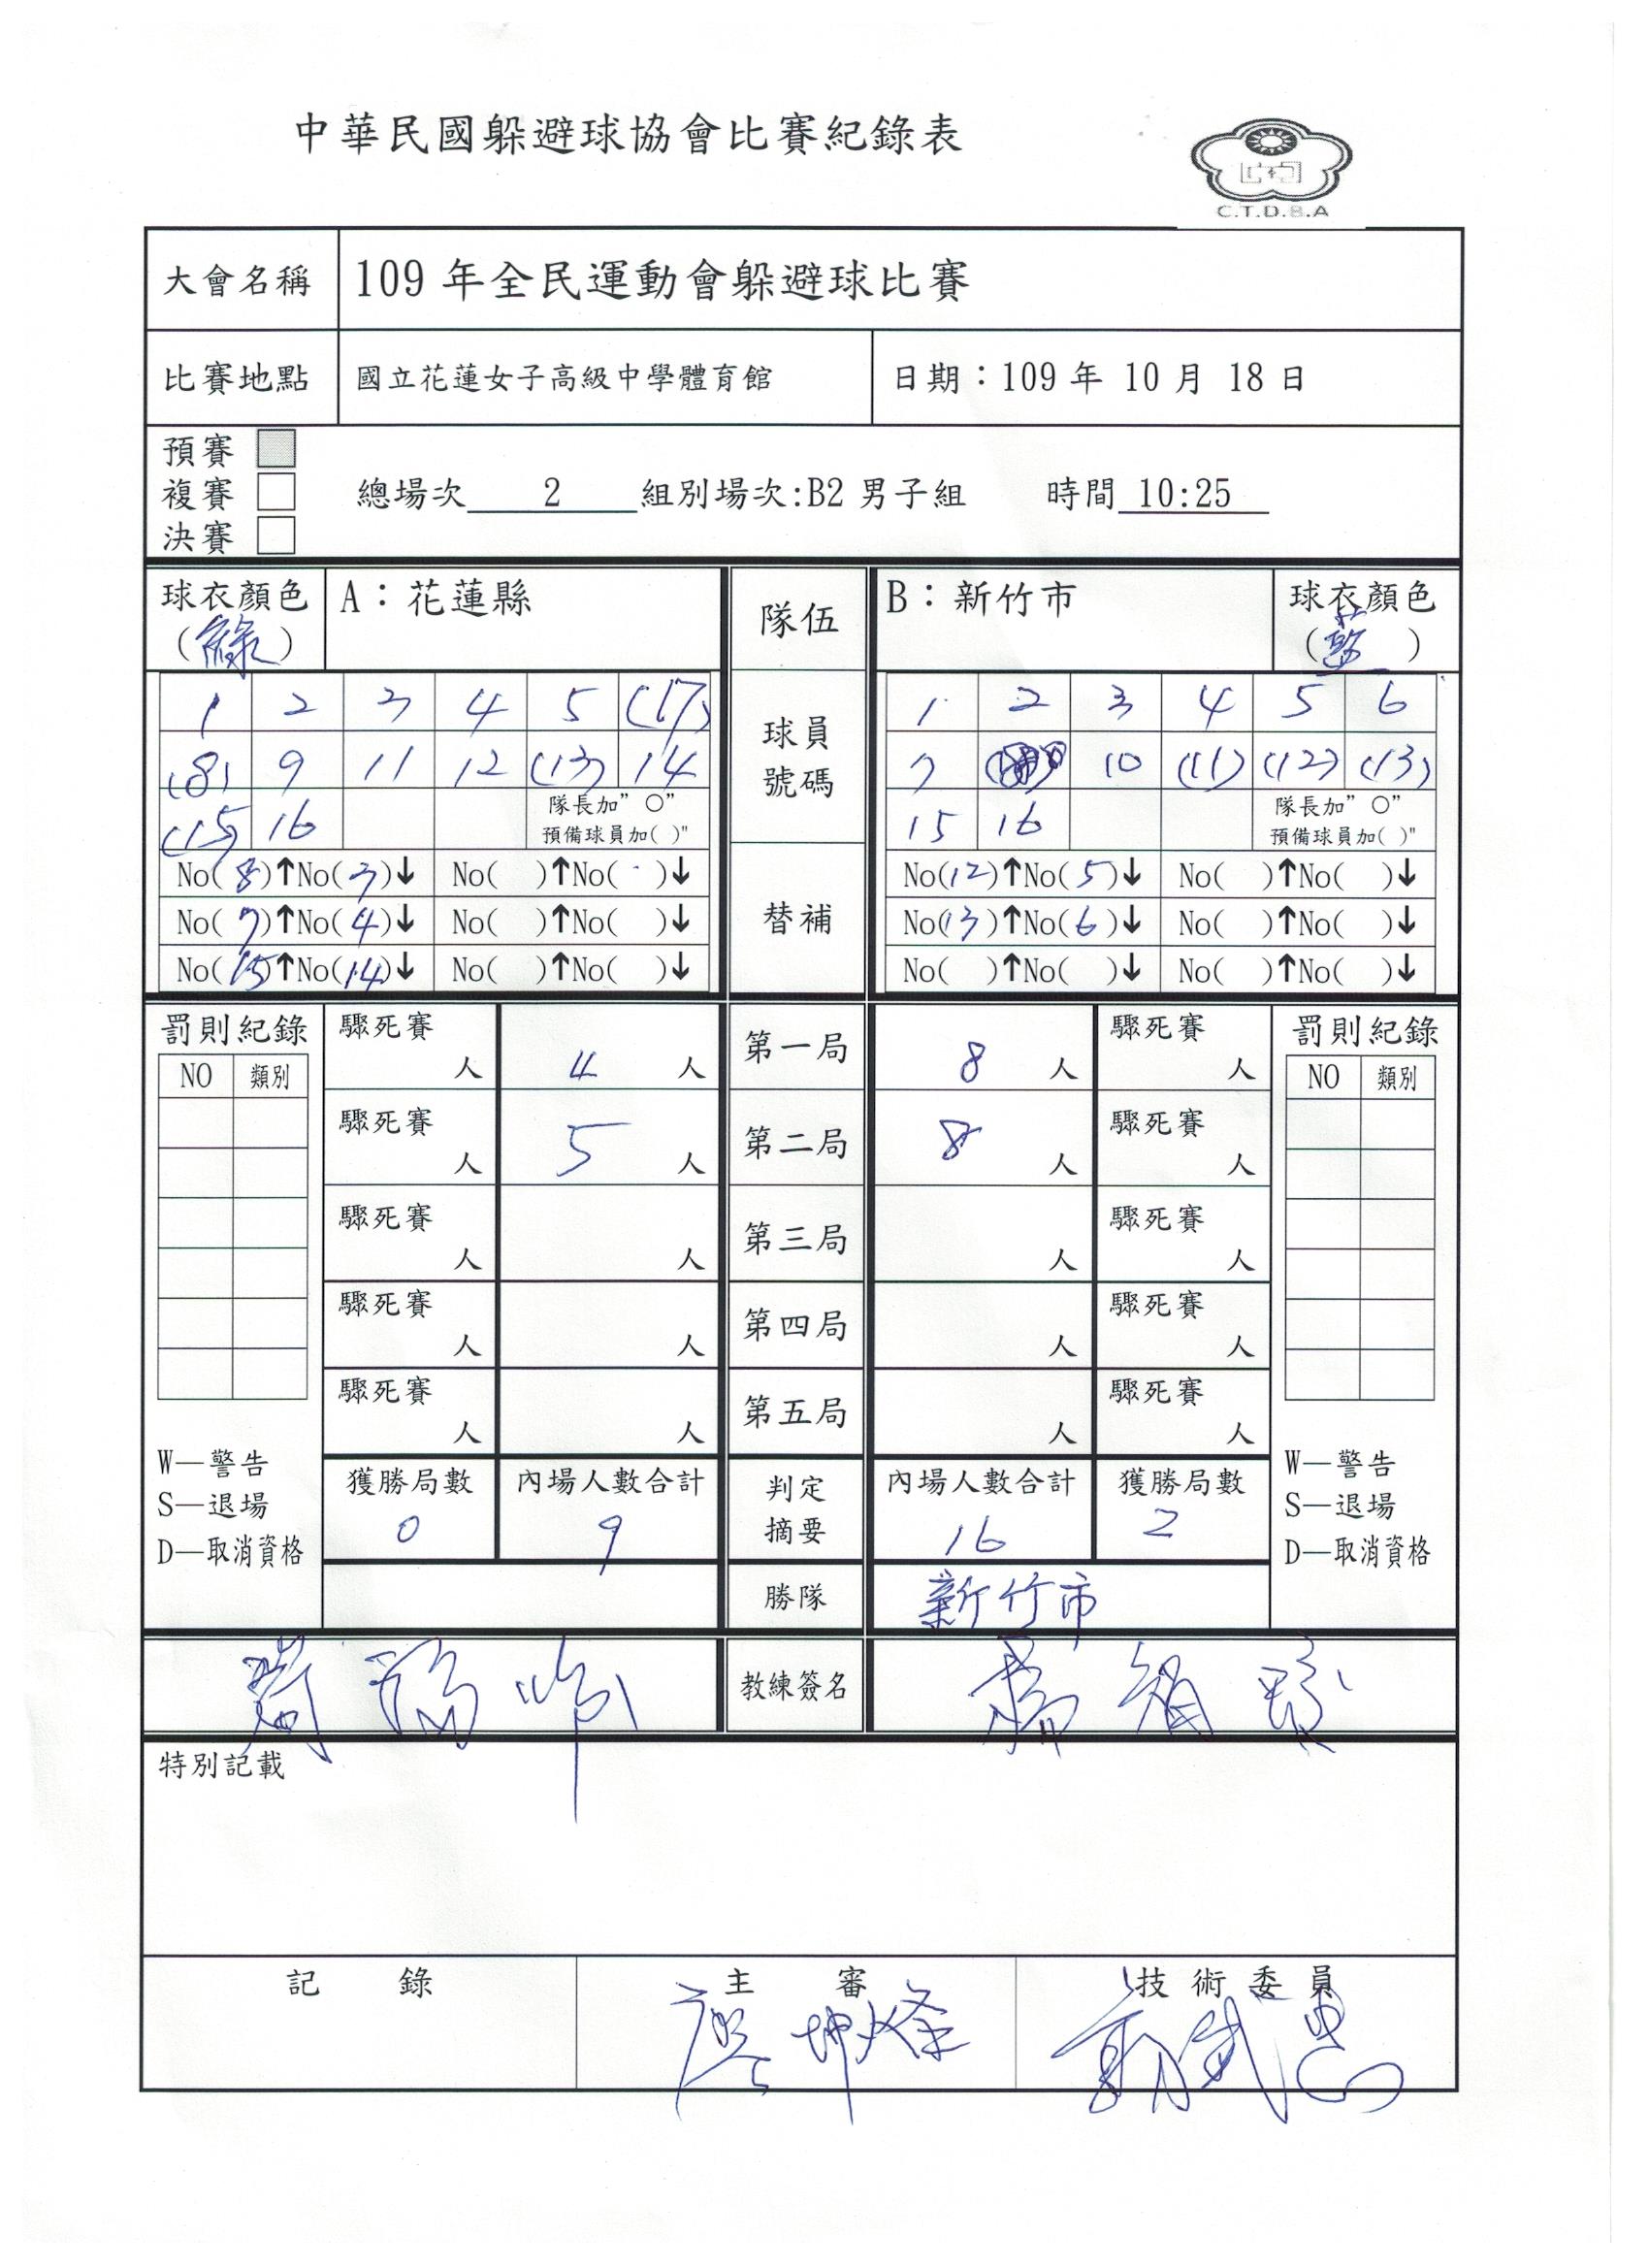 中華民國躲避球協會比賽紀錄表
C.T.D.B.A
大會名稱 109 年全民運動會躲避球比賽
比賽地點 國立花蓮女子高級中學體育館 日期：109 年 10 月 18 日
預賽
複賽 總場次 2 組別場次:B2 男子組 時間 10:25
決賽
球衣顏色 A：花蓮縣 隊伍 B：新竹市 球衣顏色
(綠) (藍)
1 2 3 4 5 (17) 球員 1 2 3 4 5 6
(8) 9 11 12 (13) 14 號碼 7 10 (11) (12) (13)
(15) 16 隊長加"○" 15 16 隊長加"○"
預備球員加( )" 預備球員加( )"
No(8)↑No(3)↓ No( )↑No( )↓ 替補 No(12)↑No(5)↓ No( )↑No( )↓
No(7)↑No(4)↓ No( )↑No( )↓ No(13)↑No(6)↓ No( )↑No( )↓
No(15)↑No(14)↓ No( )↑No( )↓ No( )↑No( )↓ No( )↑No( )↓
罰則紀錄 驟死賽 人 4 人 第一局 8 人 驟死賽 人 罰則紀錄
NO 類別 NO 類別
驟死賽 人 5 人 第二局 8 人 驟死賽 人
驟死賽 人 人 第三局 人 驟死賽 人
驟死賽 人 人 第四局 人 驟死賽 人
驟死賽 人 人 第五局 人 驟死賽 人
W—警告 W—警告
S—退場 S—退場
D—取消資格 D—取消資格
獲勝局數 內場人數合計 判定 內場人數合計 獲勝局數
0 9 摘要 16 2
勝隊 新竹市
教練簽名
特別記載
記 錄 主 審 技術委員
廖坤峰